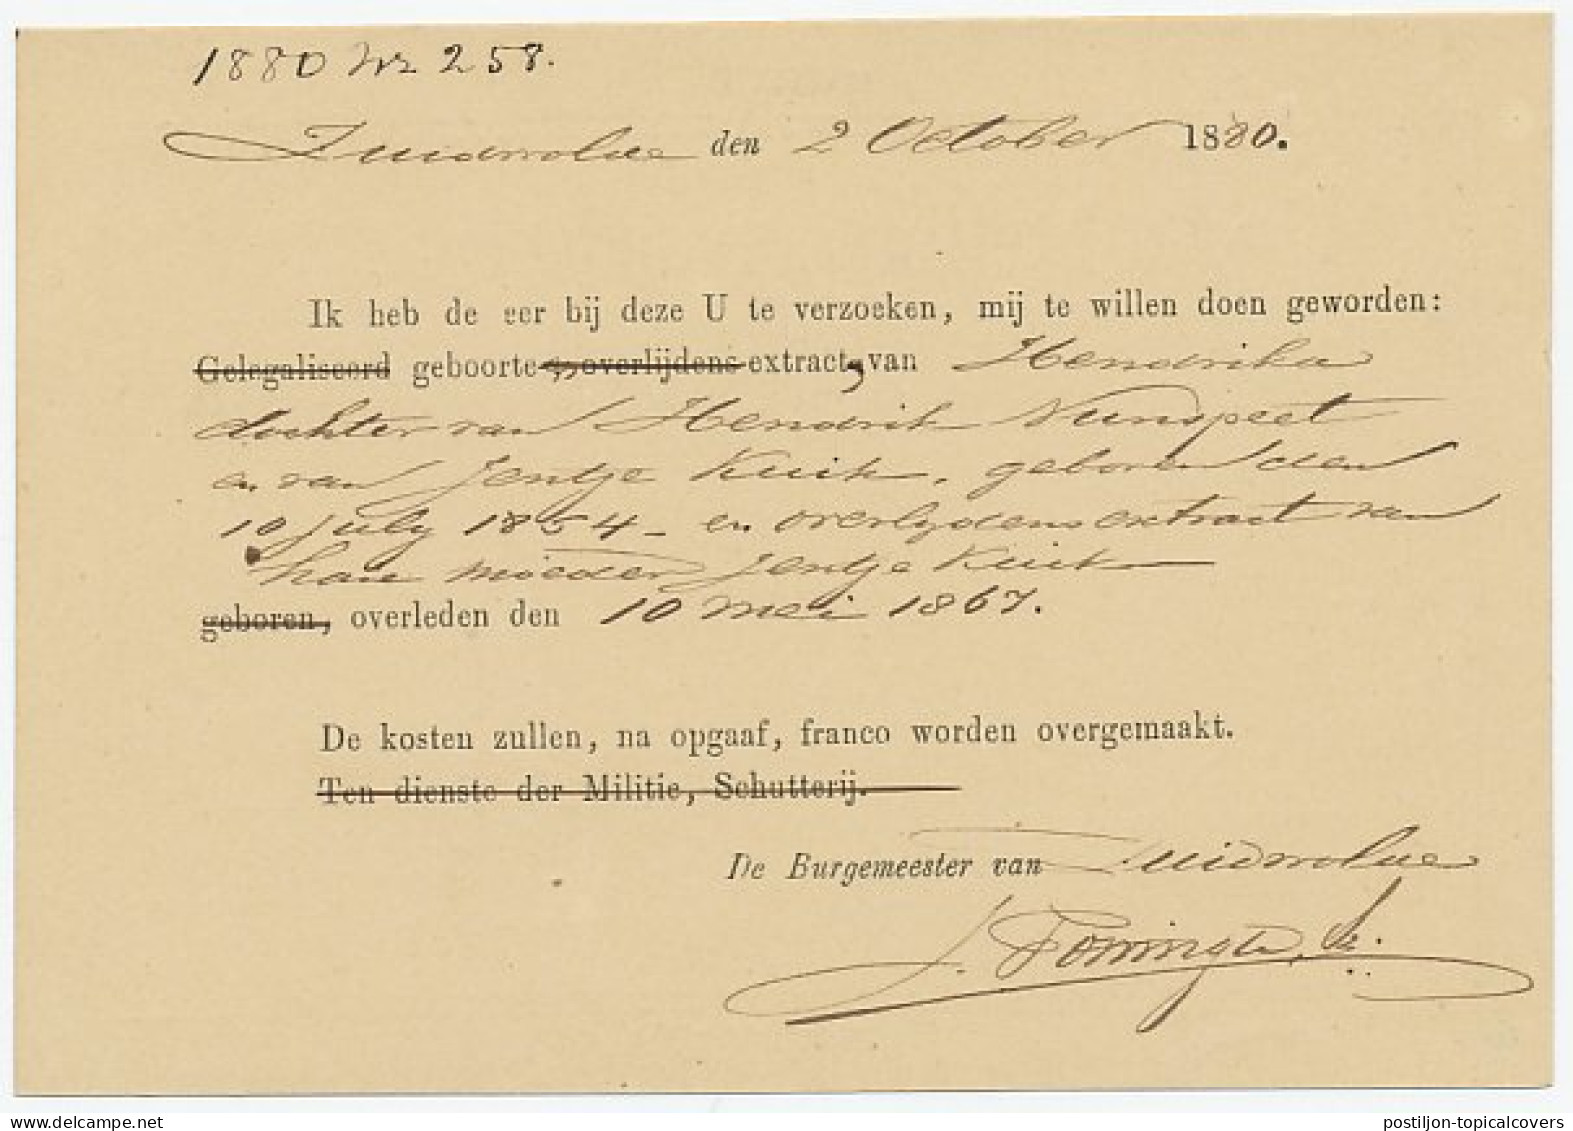 1880 Nr 258.
Zuidwolde den 2 October 1880.
Ik heb de eer bij deze U te verzoeken, mij te willen doen geworden:
Gelegaliseerd geboorte-, overlijdens-extract, van Hendrika
dochter van Hendrik Nunspeet
en van Jentje Kuik, geboren den
10 July 1854 - en overlydens extract van
hare moeder Jentje Kuik
geboren, overleden den 10 mei 1867.
De kosten zullen, na opgaaf, franco worden overgemaakt.
Ten dienste der Militie, Schutterij.
De Burgemeester van Zuidwolde
J.
www.delcampe.net
postiljon-topicalcovers